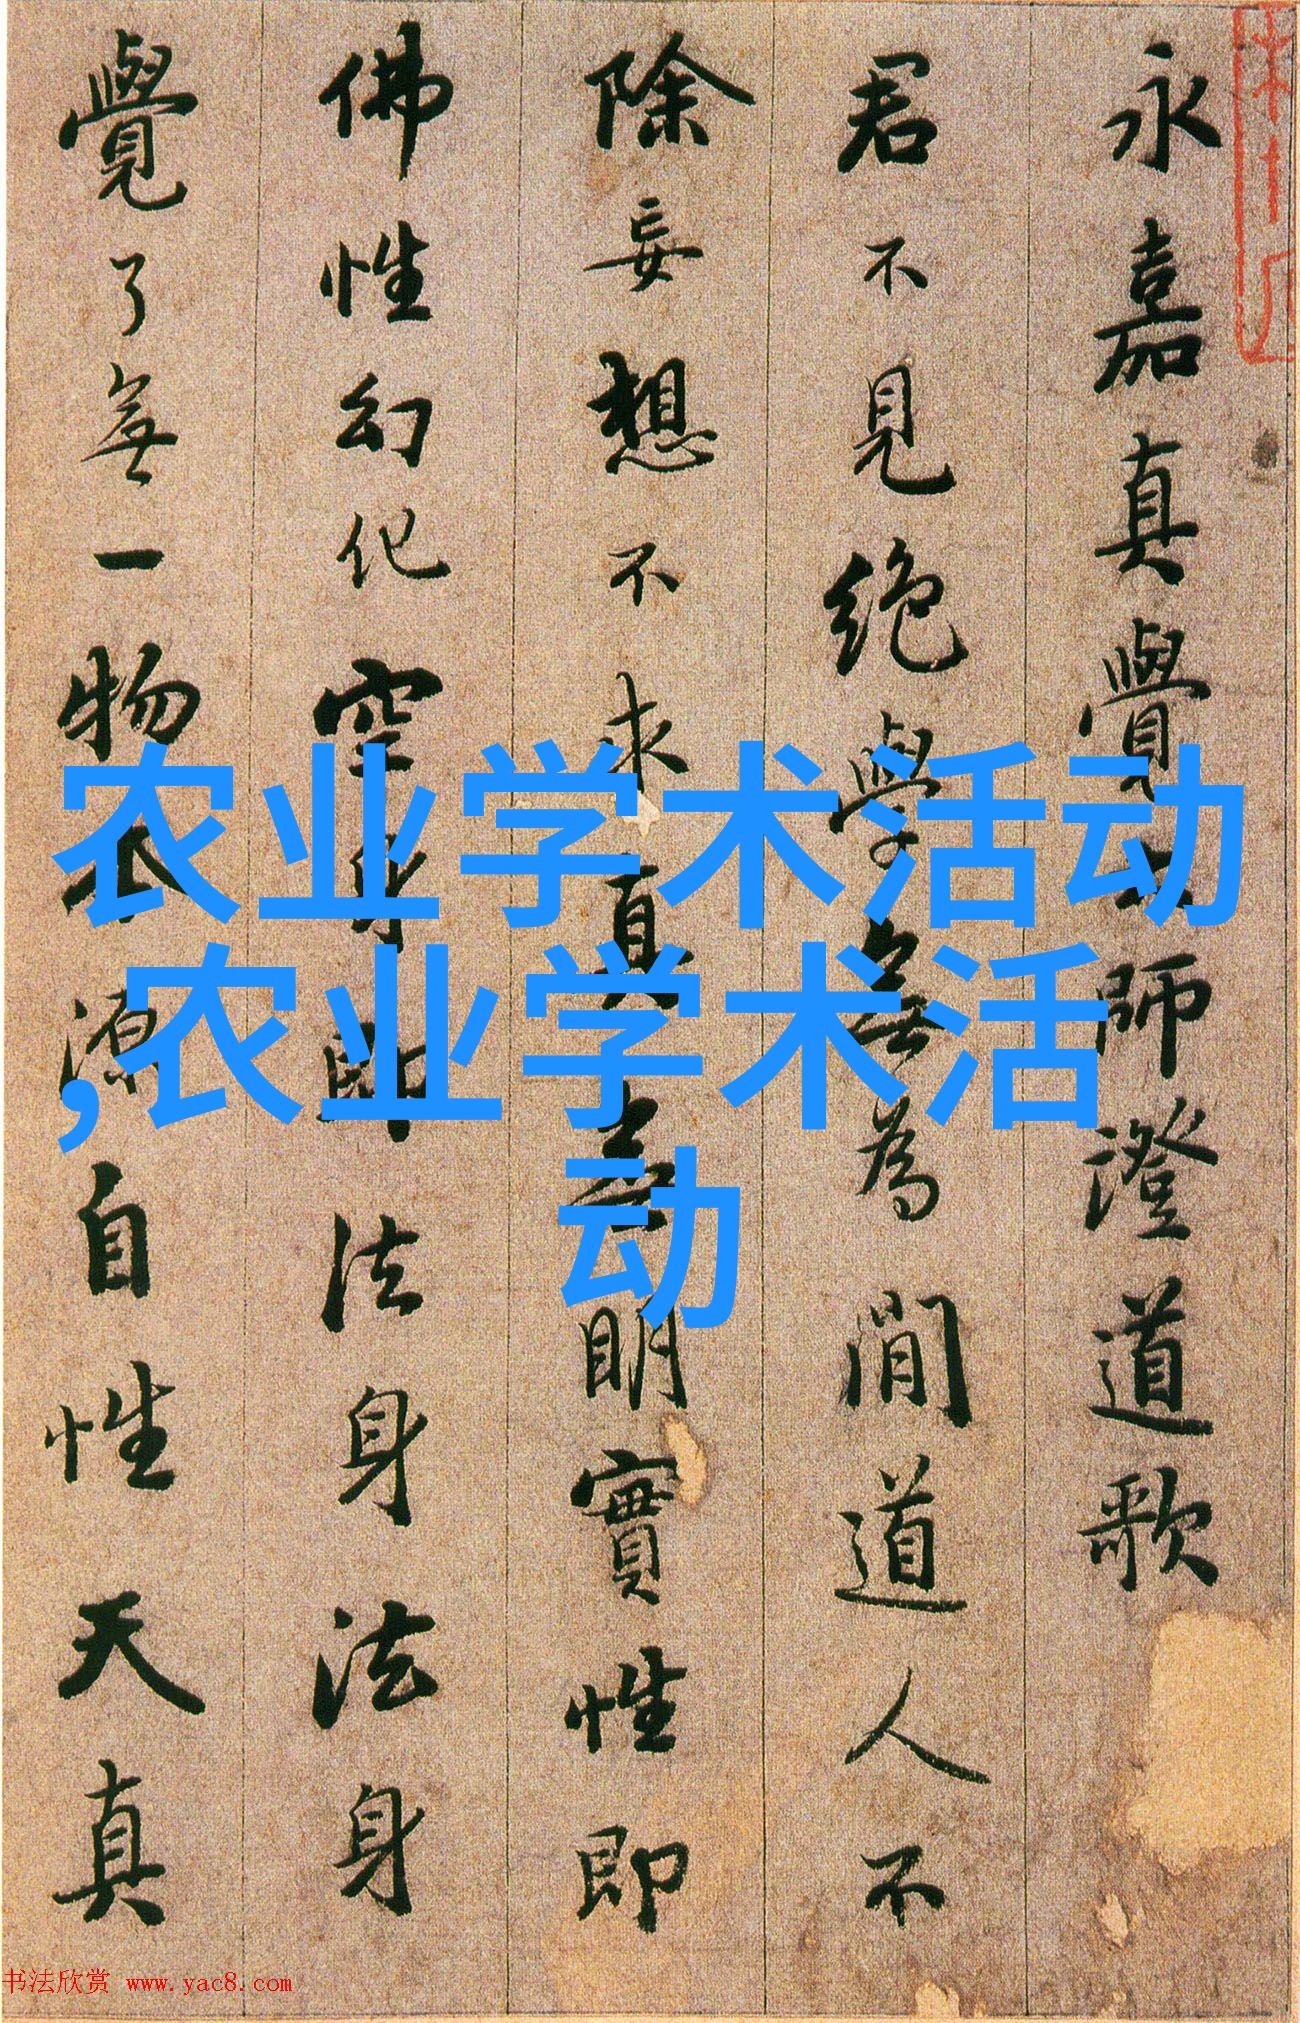 永嘉真覺大師澄道歌
君不見絶學無為閒道人不
除妄想不求真無明實性即
佛性幻化空身即法身法身
覺了無一物本源自性天真
农业学术活动
,农业学术活
动
书法欣赏 www.yac8.com